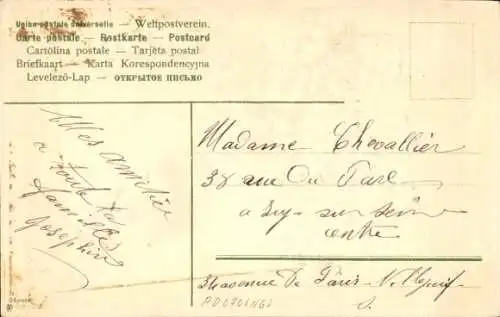 Union postale universelle — Weltpostverein.
Carte postale — Postkarte — Postcard
Cartolina postale — Tarjeta postal
Briefkaart — Karta Korespondencyjna
Levelező-Lap — ОТКРЫТОЕ ПИСЬМО
Mes amitiés
a toute la
famille
Josephine
Madame Chevallier
38 rue Du Parc
a Ivry sur seine
centre
avenue De Paris